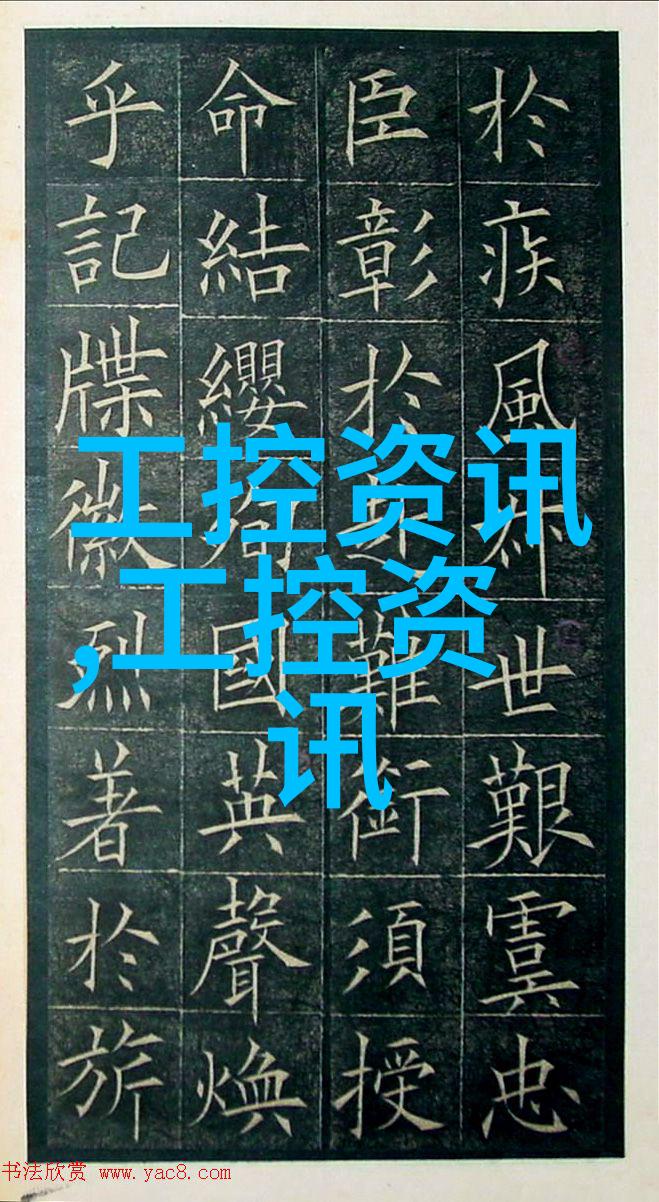 於疾風世艱虞忠
臣彰於難銜須授
命結纓國英聲煥
乎記牒徽烈著於旂
工控资讯
,工控资
讯
书法欣赏 www.yac8.com